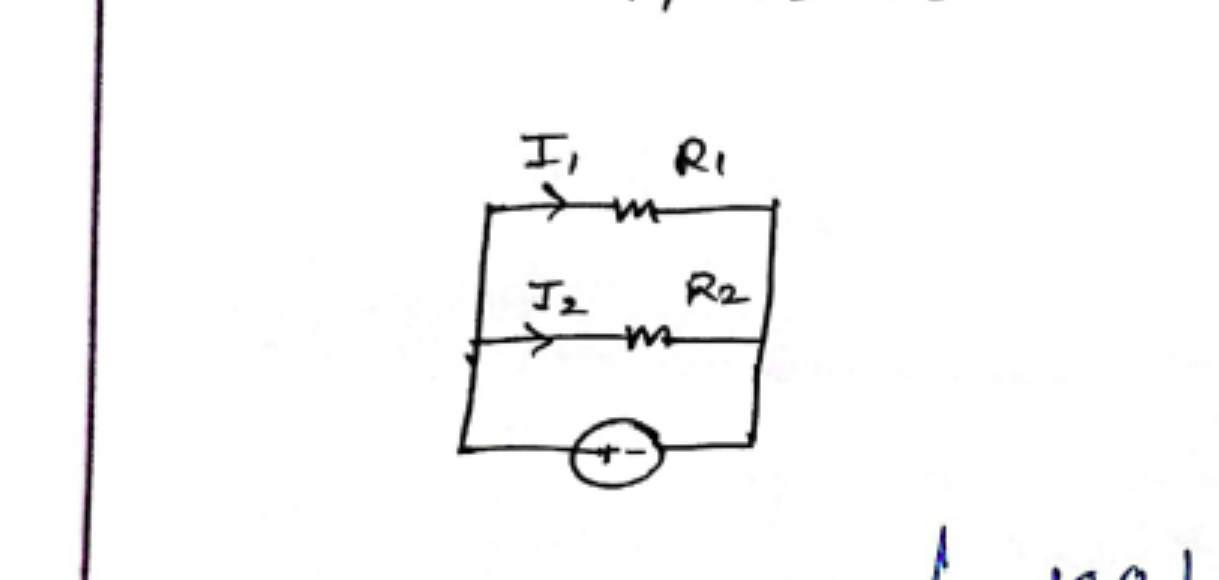 I₁ R₁
I₂ R₂
+ -